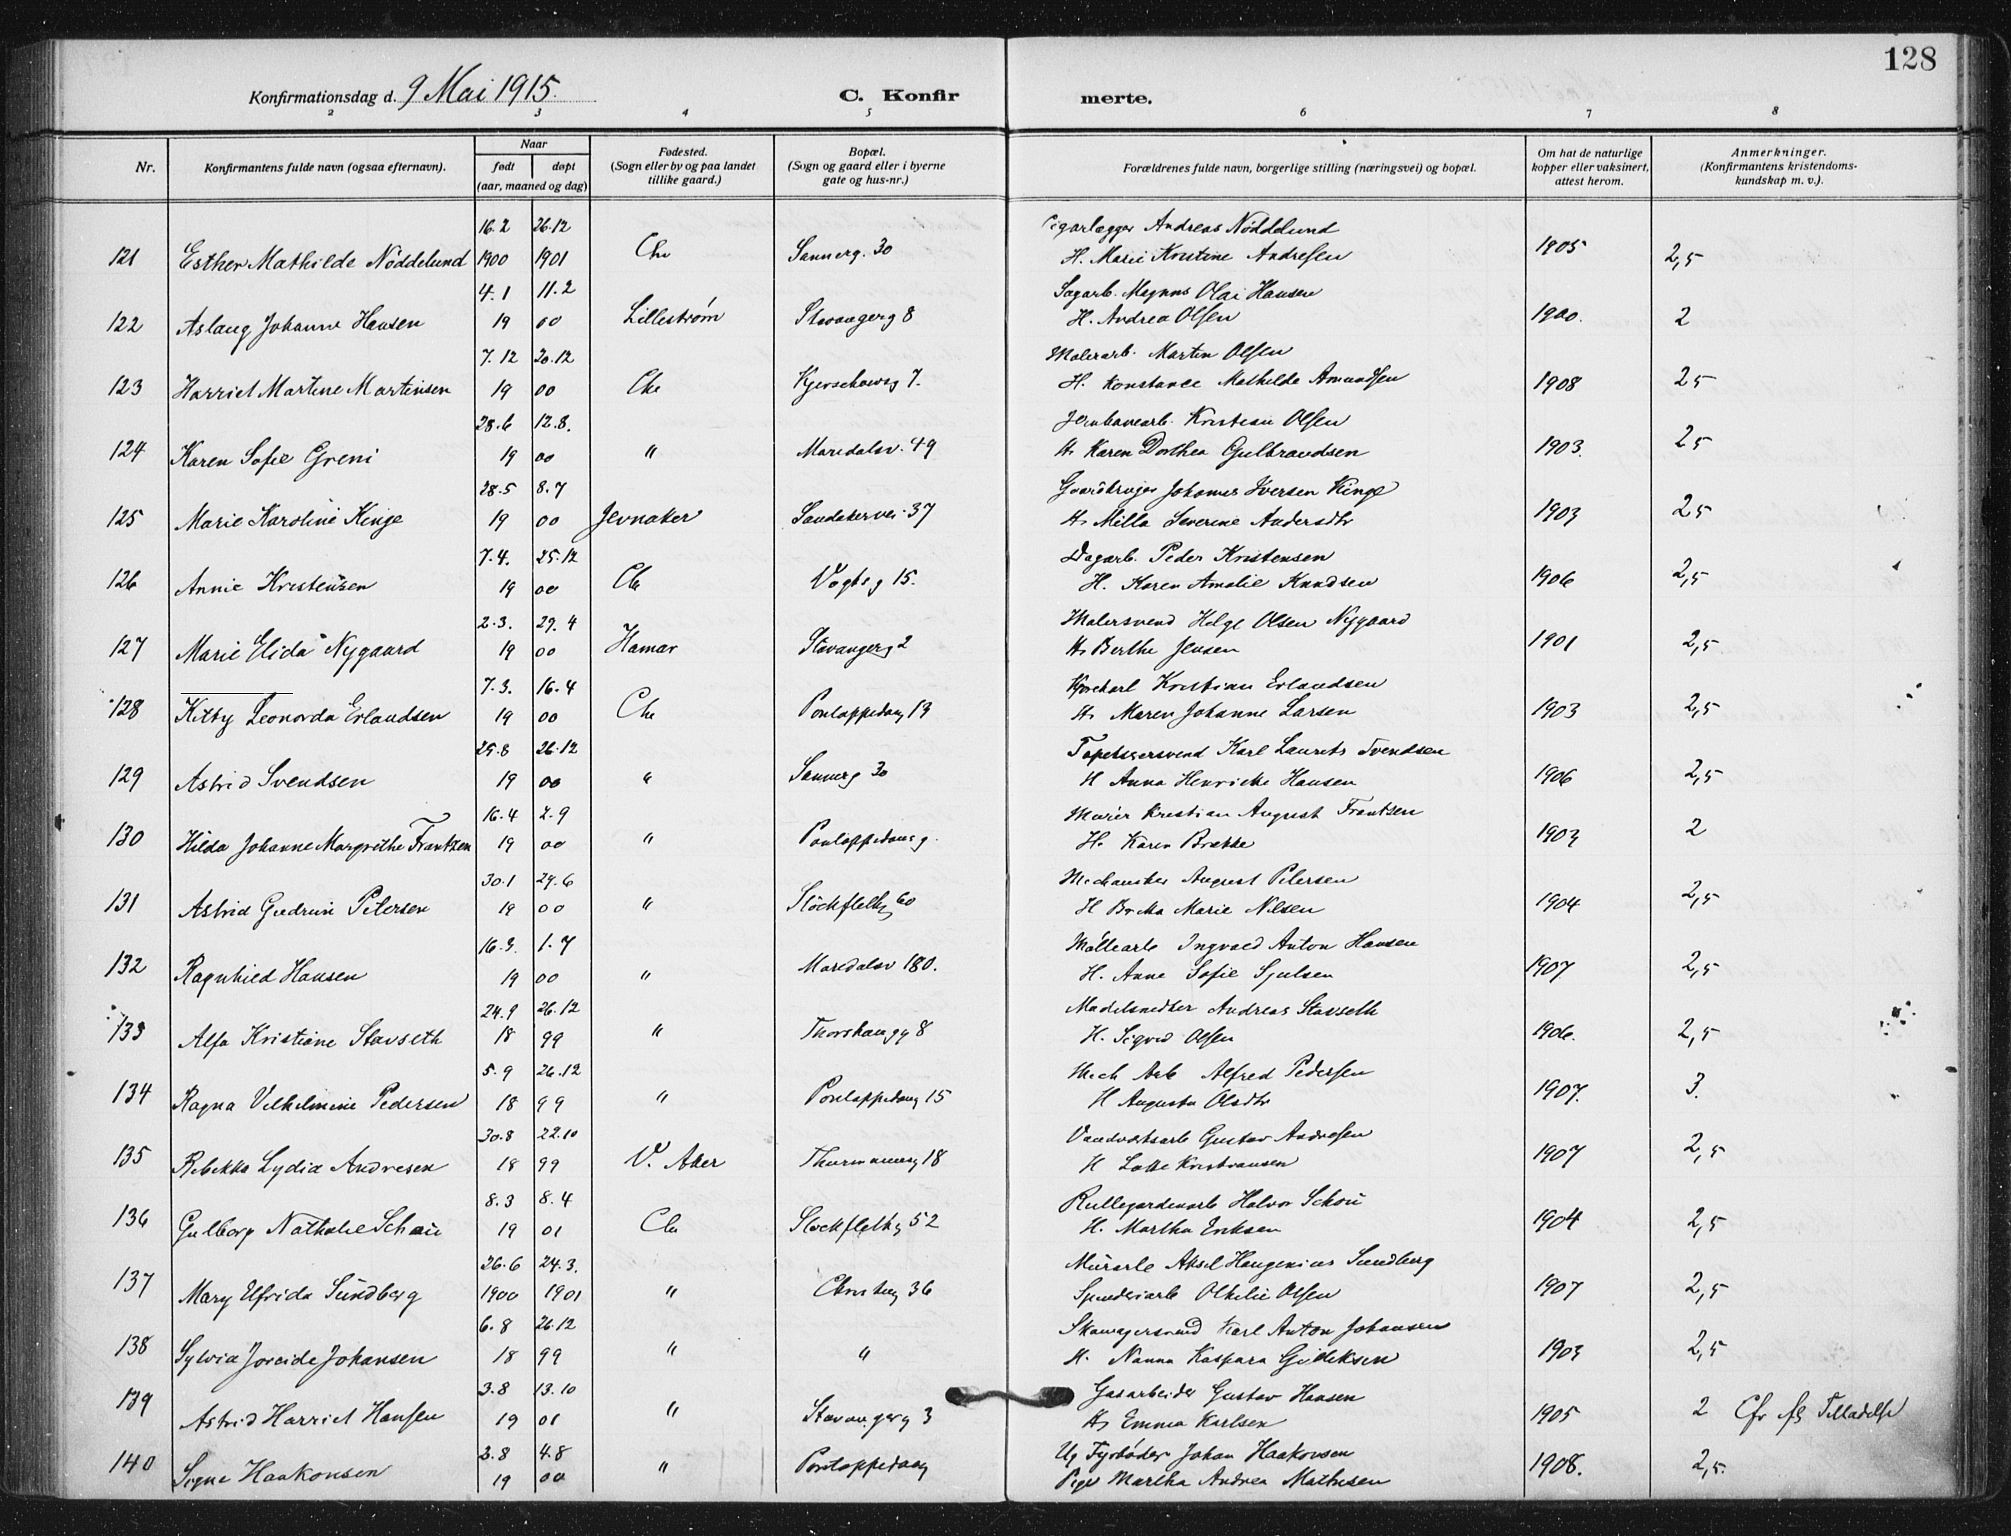 128
Konfirmationsdag d. 9 Mai 1915. C. Konfirmerte.
2 3 4 5 6 7 8
Nr. Konfirmantens fulde navn (ogsaa efternavn). Naar født døpt (aar, maaned og dag) Fødested. (Sogn eller by og paa landet tillike gaard.) Bopæl. (Sogn og gaard eller i byerne gate og hus-nr.) Forældrenes fulde navn, borgerlige stilling (næringsvei) og bopæl. Om hat de naturlige kopper eller vaksinert, attest herom. Anmerkninger. (Konfirmantens kristendomskundskap m. v.).
16.2 26.12 Cigarlægger Andreas Nöddelund
121 Esther Mathilde Nöddelund 1900 1901 Chr Sannerg. 30 H. Marie Kristine Andresen 1905 2,5
4.1 11.2 Sagarb. Magnus Olai Hansen
122 Aslaug Johanne Hansen 19 00 Lillestrøm Stavangerg 8 H. Andrea Olsen 1900. 2
7.12 30.12 Malerarb. Martin Olsen
123 Harriet Martine Martinsen 19 00 Chr Kjerschowsg 7. H. Konstance Mathilde Amundsen 1908 25
28.6 12.8. Jernbanearb. Kristian Olsen
124 Karen Sofie Greni 19 00 " Maridalsv. 49 H. Karen Dorthea Gulbrandsen 1903. 25
28.5 8.7 Gaardbruger Johannes Iversen Kinge
125 Marie Karoline Kinge 19 00 Jevnaker Sandakervei 37 H. Milla Severine Andersdtr 1903 25
7.4. 25.12 Dagarb. Peder Kristensen
126 Annie Kristensen 19 00 Chr Vogtsg 15. H. Karen Amalie Knudsen 1906 2,5
2.3. 29.4 Malersvend Helge Olsen Nygaard
127 Marie Elida Nygaard 19 00 Hamar Stavangerg 2 H. Berthe Jensen 1901 2,5
7.3. 16.4 Kristian Erlandsen
128 Kitty Leonarda Erlandsen 19 00 Chr Pontoppidang 13 H. Maren Johanne Larsen 1903 2,5
25.8 26.12 Tapetserersvend Karl Laurits Svendsen
129 Astrid Svendsen 19 00 " Sannerg 30 H Anna Henrikke Hansen 1906 2,5
16.4 2.9 Murer Kristian August Frantzen
130 Hilda Johanne Margrethe Frantzen 19 00 " Pontoppidans g. H. Karen Brække 1903 2
30.1 24.6 Mechaniker August Petersen
131 Astrid Gudrun Petersen 19 00 " Stockflethg 60 H Britta Marie Nilsen 1904 2,5
16.3. 1.7 Möllearb Ingvald Anton Hansen
132 Ragnhild Hansen 19 00 " Maridalsv 180. H. Anne Sofie Sjulsen 1907 2,5
24.9 26.12 Andreas Stavseth
133 Alfa Kristiane Stavseth 18 99 " Thorshaugg 8 H. Sigrid Olsen 1906. 2,5
5.9 26.12 Mech Arb Alfred Pedersen
134 Ragna Vilhelmine Pedersen 18 99 " Pontoppidang 15 H Augusta Olsdtr 1907. 3.
30.8 22.10 Vandværksarb Gustav Andresen
135 Rebekka Lydia Andresen 18 99 V. Aker Thurmannsg 18 H Lotte Kristiansen 1907 2,5
8.3 8.4 Rullegardinarb Halvor Schou
136 Gulborg Nathalie Schou 19 01 Chr Stockflethg 52 H. Martha Eriksen 1904 2,5
26.6 24.3. Murarb Aksel Haugenius Sundberg
137 Mary Elfrida Sundberg 1900 1901 " Christieg 36 Spinderiarb Othilie Olsen 1907 2,5
6.8 26.12 Skomagersvend Karl Anton Johansen
138 Sylvia Joreide Johansen 18 99 " " H. Nanna Kaspara Gulliksen 1903 2,5
3.8 13.10 Gasarbeider Gustav Hansen
139 Astrid Harriet Hansen 19 01 " Stavangerg 3 H. Emma Karlsen 1905 2 Cfr Tilladelse
3.8 4.8 Ug Fyrbøder Johan Haakonsen
140 Signe Haakonsen 19 00 " Pontoppidang Pige Martha Andrea Mathisen 1908. 2,5.